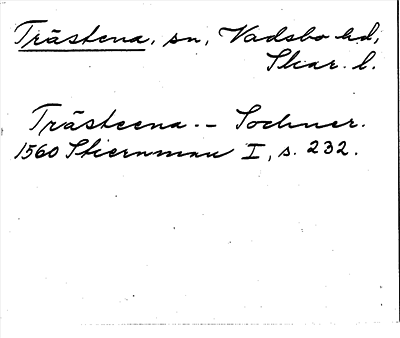 Trästena, sn, Vadsbo hd,
Skar. l.
Trästeena.- Sochner.
1560 Stiernman I, s. 232.